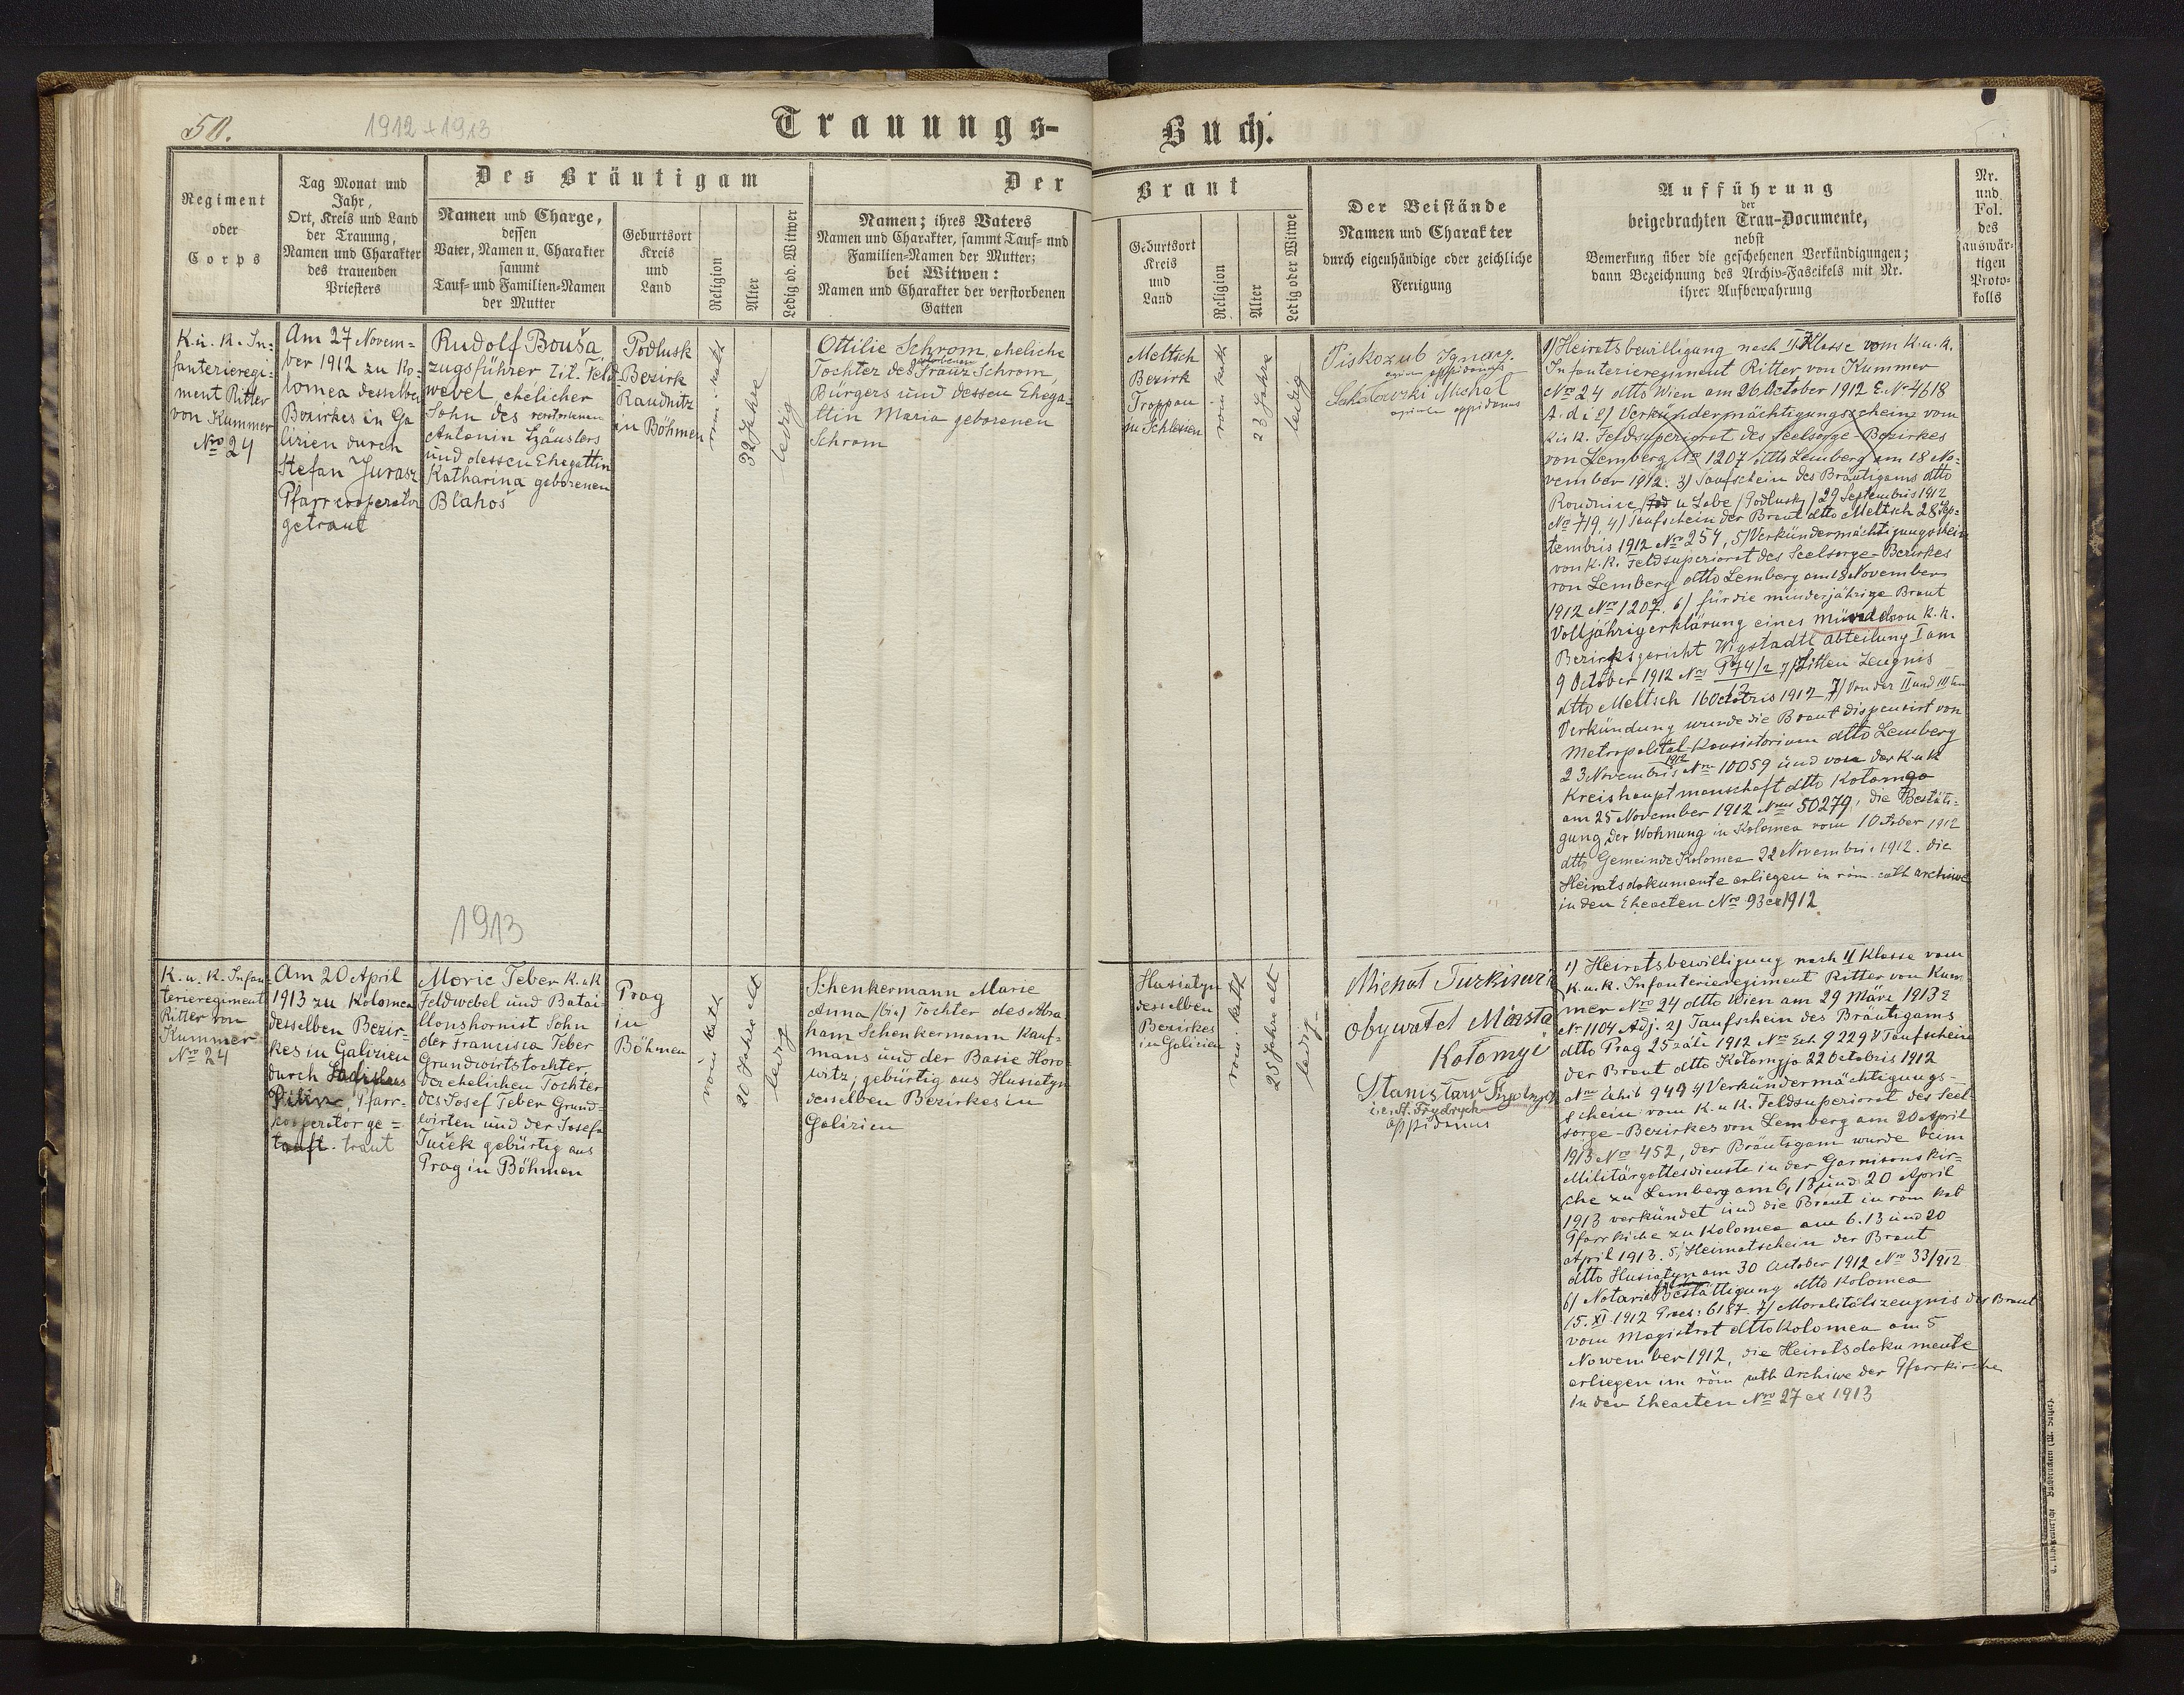 50.
1912 + 1913
Trauungs-
Buch.
Regiment
oder
Corps
Tag Monat und
Jahr,
Ort, Kreis und Land
der Trauung,
Namen und Charakter
des trauenden
Priesters
Des Bräutigam
Namen und Charge,
dessen
Vater, Namen u. Charakter
sammt
Tauf- und Familien-Namen
der Mutter
Geburtsort
Kreis
und
Land
Religion
Alter
Ledig od. Witwer
Der
Namen; ihres Vaters
Namen und Charakter, sammt Tauf- und
Familien-Namen der Mutter;
bei Witwen:
Namen und Charakter der verstorbenen
Gatten
Braut
Geburtsort
Kreis
und
Land
Religion
Alter
Ledig oder Witwe
Der Beistände
Namen und Charakter
durch eigenhändige oder zeichliche
Fertigung
Aufführung
der
beigebrachten Trau-Documente,
nebst
Bemerkung über die geschehenen Verkündigungen;
dann Bezeichnung des Archiv-Fascikels mit Nr.
ihrer Aufbewahrung
Nr.
und
Fol.
des
auswär-
tigen
Proto-
kolls
K. u. K. In-
fanterieregi-
ment Ritter
von Kummer
Nro 24
Am 27 Novem-
ber 1912 zu Ko-
lomea desselben
Bezirkes in Ga
lizien durch
Stefan Jurasz
Pfarrcooperator
getraut
Rudolf Bouša
zugsführer tit. Feld-
webel, ehelicher
Sohn des verstorbenen
Antonin
und dessen Ehegattin
Katharina geborenen
Blahoš
Podlusk
Bezirk
Raudnitz
in Böhmen
röm. kath
32 Jahre
ledig
Ottilie Schrom, eheliche
Tochter des Franz Schrom,
Bürgers und dessen Ehega-
ttin Maria geborenen
Schrom
Meltsch
Bezirk
Troppau
in Schlesien
röm. kath
23 Jahre
ledig
Piskozub Ignacy.
oppidanus
Michał
oppidanus
1) Heiratsbewilligung nach II Klasse vom K. u. K.
Infanterieregiment Ritter von Kummer
Nro 24 dtto Wien am 26 October 1912 E. Nr 4618
A. d j 2) Verkündermächtigungsschein vom
K. u. K. Feldsuperiorat des Seelsorge-Bezirkes
von Lemberg No 1207 dtto Lemberg am 18 No-
vember 1912. 3) Taufschein des Bräutigams dtto
Roudnice u Labe /Podlusk/ 29 Septembris 1912
No 719 4) Taufschein der Braut dtto Meltsch 28 Sep-
tembris 1912 Nro 254, 5) Verkündermächtigungschein
von K. K. Feldsuperiorat des Seelsorge-Bezirkes
von Lemberg dtto Lemberg am 18 November
1912 Nro 1207. 6) für die minderjährige Braut
Volljährigerklärung eines Mündels von K. K.
Bezirksgericht Wigstadtl Abteilung I am
9 October 1912 Nro P 74/12 7) Sitten Zeugnis
dtto Meltsch 16 Octobris 1912 7) Von der II und III ten
Verkündung wurde die Braut dispensirt von
Metropolital-Konsistorium dtto Lemberg
23 Novembris 1912 Nro 10059 und von der K u K
Kreishauptmanschaft dtto Kolomea
am 25 November 1912 Nro 50279, die Bestäti-
gung der Wohnung in Kolomea vom 1 October 1912
dtto Gemeinde Kolomea 22 Novembris 1912. die
Heiratsdokumente erliegen in röm. cath archive
in den Eheacten Nro 93 ex 1912
1913
K. u. K. Infan-
terieregiment
Ritter von
Kummer
Nro 24
Am 20 April
1913 zu Kolomea
desselben Bezir-
kes in Galizien
durch Ladislaus
Pfarr-
kooperator ge-
tauft. traut
Moric Teber K. u K
Feldwebel und Batai-
llonshornist Sohn
der Francisca Teber
Grundwirtstochter,
der ehelichen Tochter
des Josef Teber Grund-
wirten und der Josefa
Tuček gebürtig aus
Prag in Böhmen
Prag
in
Böhmen
röm kath
20 Jahre alt
ledig
Schenkermann Marie
Anna Tochter des Abra
ham Schenkermann Kauf-
mans und der Basie Horo
witz, gebürtig aus Husiatyn
desselben Bezirkes in
Galizien
Husiatyn
desselben
Bezirkes
in Galizien
röm. kath
25 Jahre alt
ledig
Michał
obywatel Miasta
Kołomyi
Stanisław
i. e. St. Frydrych
oppidanus
1) Heiratsbewilligung nach II Klasse vom
K. u. K. Infanterieregiment Ritter von Kum
mer Nro 24 dtto Wien am 29 März 1913 E
Nr 1104 Adj. 2) Taufschein des Bräutigams
dtto Prag 25 září 1912 Nro Exh 9229 3) Taufschein
der Braut dtto Kołomyja 22 Octobris 1912
Nro Exhib 949 4) Verkündermächtigungs-
schein vom K. u K. Feldsuperiorat des Seel
sorge-Bezirkes von Lemberg am 20 April
1913 Nro 452, der Bräutigam wurde beim
Militärgottesdienste in der Garnisonskir-
che zu Lemberg am 6, 13 und 20 April
1913 verkündet und die Braut in röm kat
Pfarrkirche zu Kolomea am 6. 13 und 20
April 1913. 5) Heimatschein der Braut
dtto Husiatyn am 30 October 1912 Nro 33/912
6) Bestättigung dtto Kolomea
15. XI 1912 Praes: 6187. 7) Moralitätszeugnis der Braut
vom Magistrat dtto Kolomea am 5
Nowember 1912, die Heiratsdokumente
erliegen im röm cath Archive der Pfarrkirche
in den Eheacten Nro 27 ex 1913